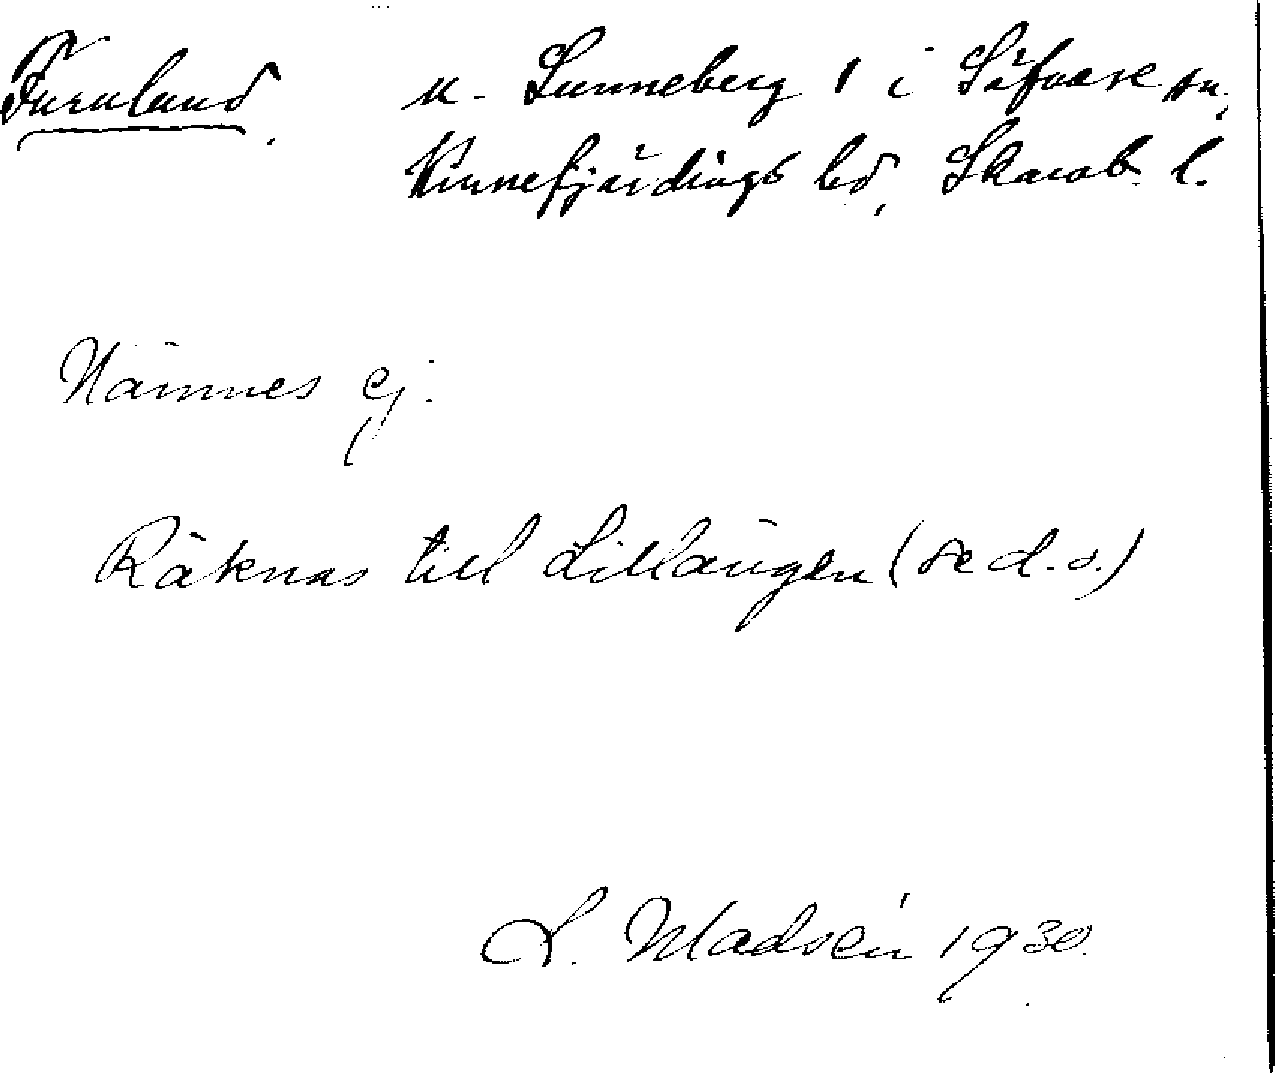 Furulund. u. Sunneberg 1 i Säfvare sn,
Kinnefjärdings hd, Skarab. l.
Nämnes ej.
Räknas till Lillängen (se d.o.)
L. Madsén 1930.